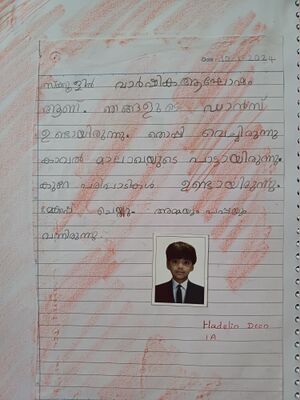 Date 2024
സ്കൂളിൽ വാർഷിക ആഘോഷം
ആണ്. ഞങ്ങളുടെ ഡാൻസ്
ഉണ്ടായിരുന്നു. തൊപ്പി വെച്ചിരുന്നു
കാവൽ മാലാഖയുടെ പാട്ടായിരുന്നു.
കുറേ പരിപാടികൾ ഉണ്ടായിരുന്നു.
ചെയ്തു. അമ്മയും പപ്പയും
വന്നിരുന്നു.
Hadelin Deon
1A